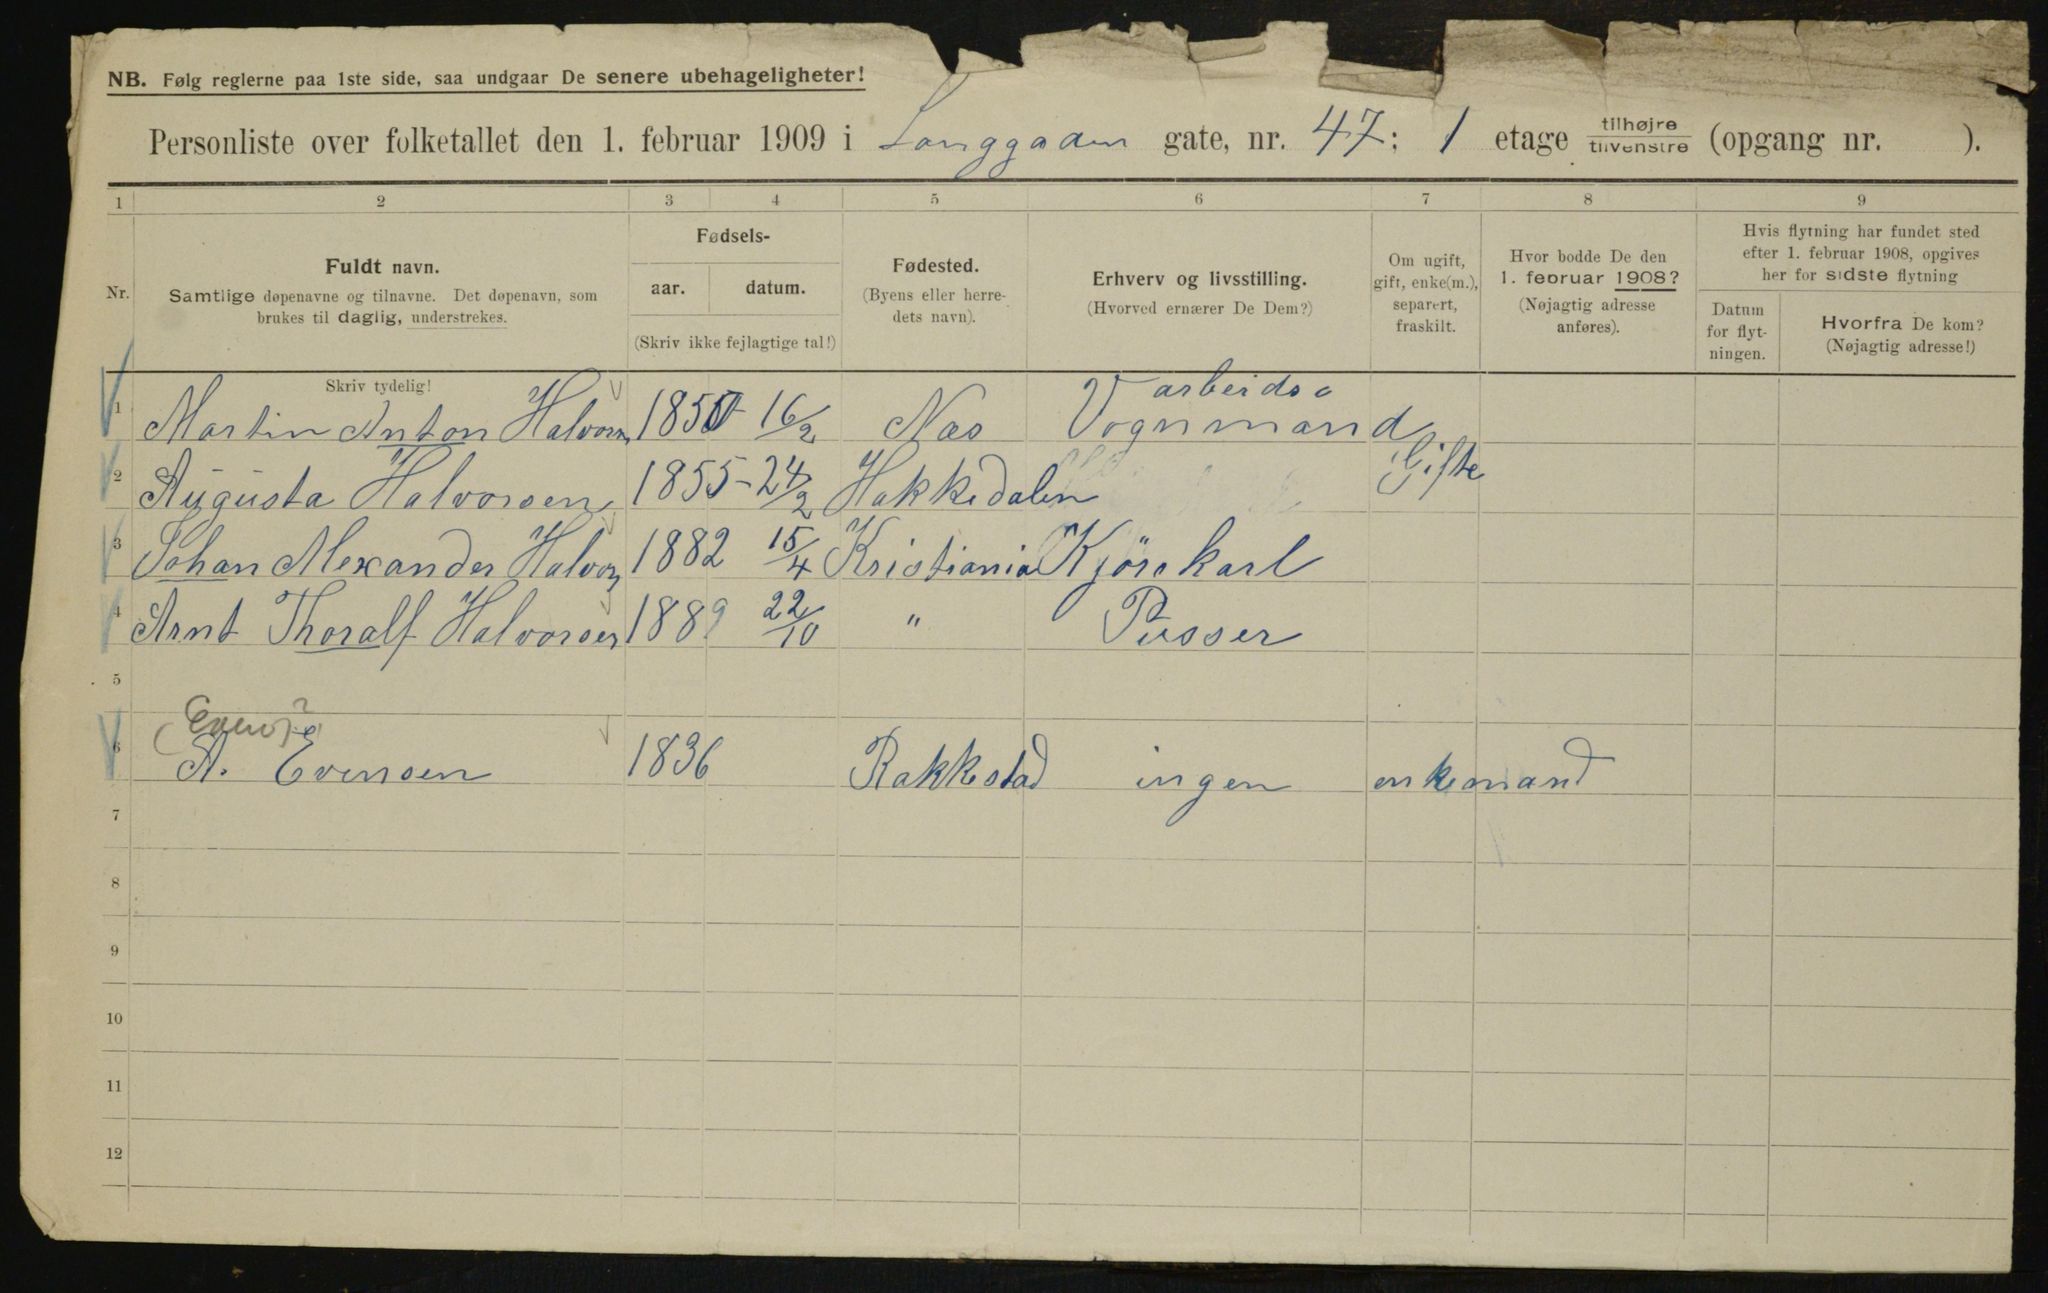 NB. Følg reglerne paa 1ste side, saa undgaar De senere ubehageligheter!
Personliste over folketallet den 1. februar 1909 i Langgaden gate, nr. 47; 1 etage tilhøjre tilvenstre (opgang nr. ).
1 2 3 4 5 6 7 8 9
Nr.
Fuldt navn.
Samtlige døpenavne og tilnavne. Det døpenavn, som
brukes til daglig, understrekes.
Skriv tydelig!
Fødsels-
aar. datum.
(Skriv ikke fejlagtige tal!)
Fødested.
(Byens eller herre-
dets navn).
Erhverv og livsstilling.
(Hvorved ernærer De Dem?)
Om ugift,
gift, enke(m.),
separert,
fraskilt.
Hvor bodde De den
1. februar 1908?
(Nøjagtig adresse
anføres).
Hvis flytning har fundet sted
efter 1. februar 1908, opgives
her for sidste flytning
Datum
for flyt-
ningen.
Hvorfra De kom?
(Nøjagtig adresse!)
arbeids
1 Martin Anton Halvorsen 1850 16/2 Næs Vognmand
Gifte
2 Augusta Halvorsen 1855 - 24/2 Hakkedalen
3 Johan Alexander Halvors 1882 15/4 Kristiania Kjörekarl
4 Arnt Thoralf Halvorsen 1889 22/10 " Pusser
5
6 A. Evensen 1836 Rakkestad ingen enkemand
7
8
9
10
11
12